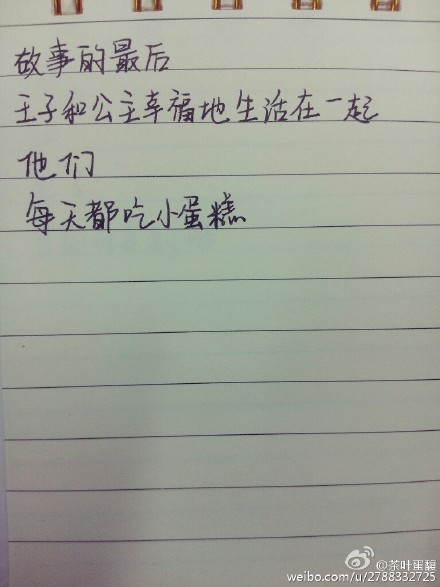 故事的最后
王子和公主幸福地生活在一起
他们
每天都吃小蛋糕
@茶叶蛋馥
weibo.com/u/2788332725